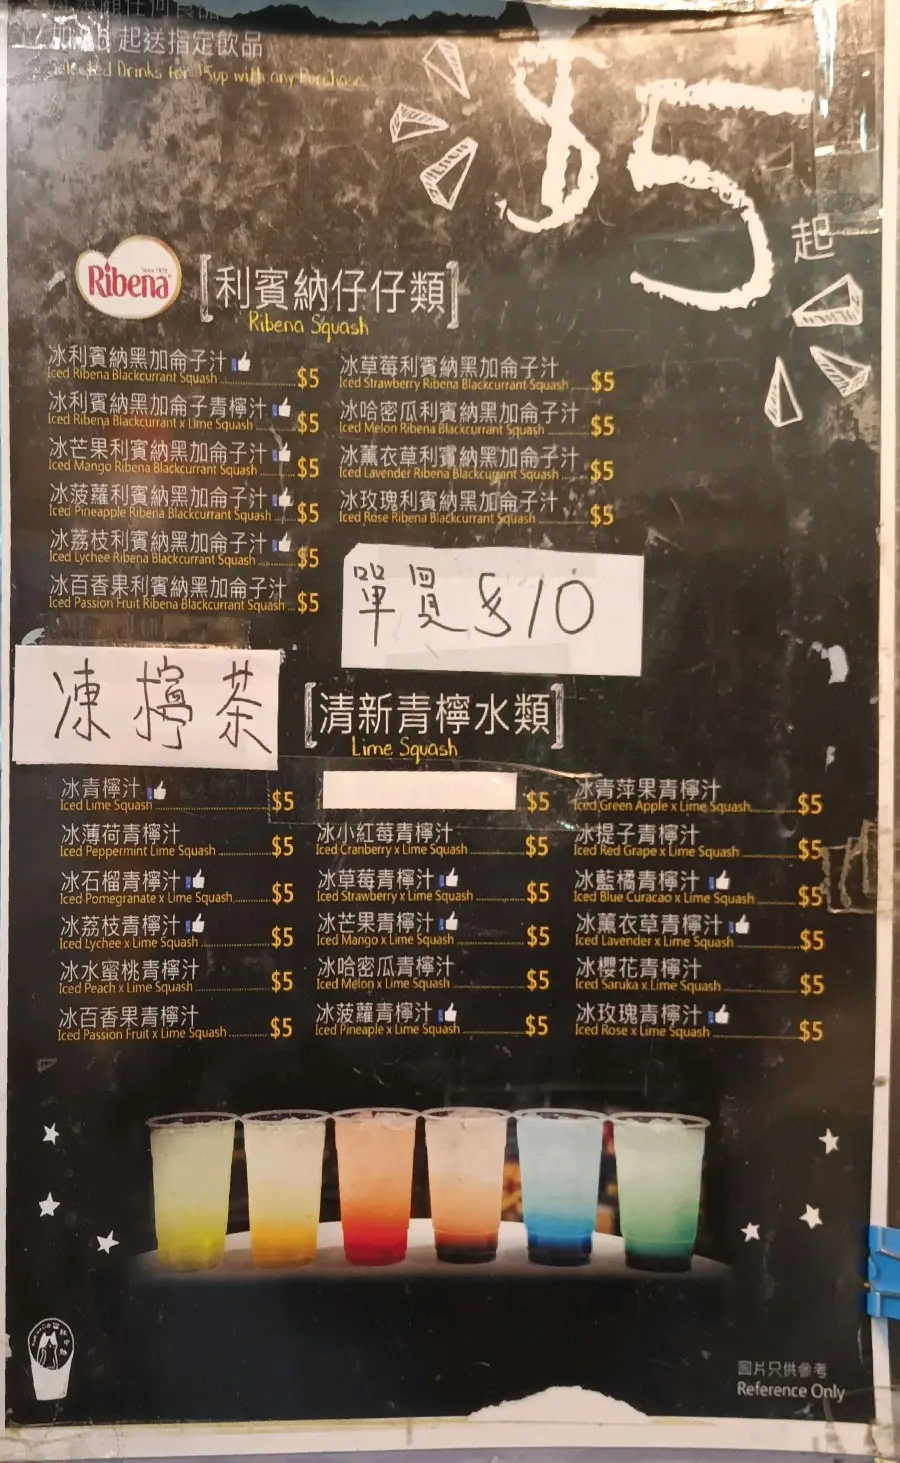 起送指定飲品
Selected Drinks for $5up with any Purchase
$5
起
Ribena
[利賓納仔仔類]
Ribena Squash
冰利賓納黑加侖子汁
Iced Ribena Blackcurrant Squash $5
冰利賓納黑加侖子青檸汁
Iced Ribena Blackcurrant x Lime Squash $5
冰芒果利賓納黑加侖子汁
Iced Mango Ribena Blackcurrant Squash $5
冰菠蘿利賓納黑加侖子汁
Iced Pineapple Ribena Blackcurrant Squash $5
冰荔枝利賓納黑加侖子汁
Iced Lychee Ribena Blackcurrant Squash $5
冰百香果利賓納黑加侖子汁
Iced Passion Fruit Ribena Blackcurrant Squash $5
冰草莓利賓納黑加侖子汁
Iced Strawberry Ribena Blackcurrant Squash $5
冰哈密瓜利賓納黑加侖子汁
Iced Melon Ribena Blackcurrant Squash $5
冰薰衣草利賓納黑加侖子汁
Iced Lavender Ribena Blackcurrant Squash $5
冰玫瑰利賓納黑加侖子汁
Iced Rose Ribena Blackcurrant Squash $5
單買$10
凍檸茶
[清新青檸水類]
Lime Squash
冰青檸汁
Iced Lime Squash $5
冰薄荷青檸汁
Iced Peppermint Lime Squash $5
冰石榴青檸汁
Iced Pomegranate x Lime Squash $5
冰荔枝青檸汁
Iced Lychee x Lime Squash $5
冰水蜜桃青檸汁
Iced Peach x Lime Squash $5
冰百香果青檸汁
Iced Passion Fruit x Lime Squash $5
$5
冰小紅莓青檸汁
Iced Cranberry x Lime Squash $5
冰草莓青檸汁
Iced Strawberry x Lime Squash $5
冰芒果青檸汁
Iced Mango x Lime Squash $5
冰哈密瓜青檸汁
Iced Melon x Lime Squash $5
冰菠蘿青檸汁
Iced Pineaple x Lime Squash $5
冰青萍果青檸汁
Iced Green Apple x Lime Squash $5
冰提子青檸汁
Iced Red Grape x Lime Squash $5
冰藍橘青檸汁
Iced Blue Curacao x Lime Squash $5
冰薰衣草青檸汁
Iced Lavender x Lime Squash $5
冰櫻花青檸汁
Iced Saruka x Lime Squash $5
冰玫瑰青檸汁
Iced Rose x Lime Squash $5
圖片只供參考
Reference Only